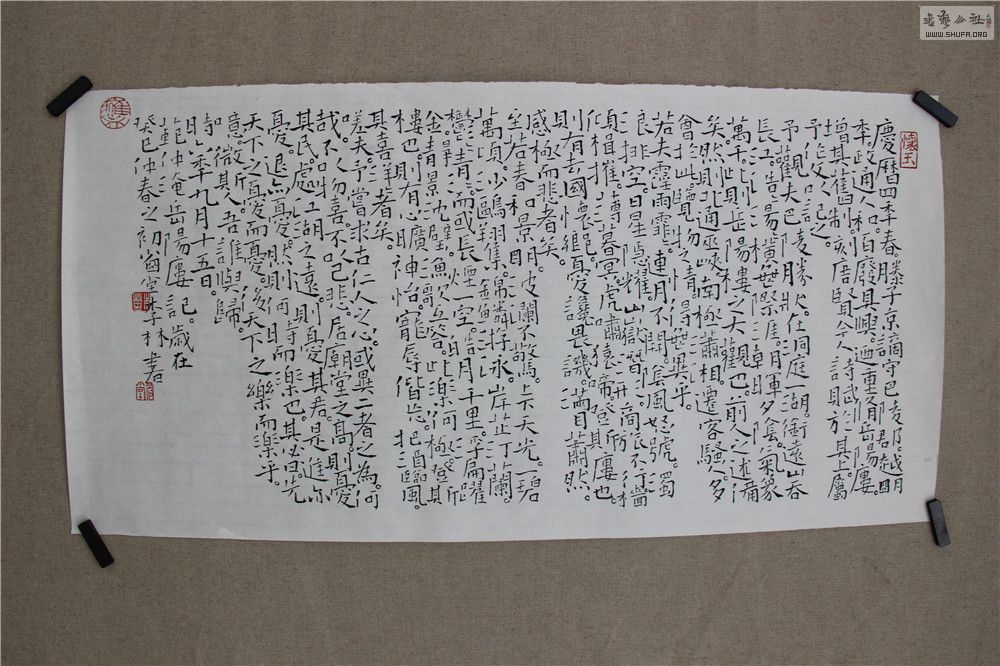 慶曆四年春。滕子京謫守巴陵郡。越明
年。政通人和。百廢具興。迺重修岳陽樓。
增其舊制。刻唐賢今人詩賦於其上。屬
予作文以記之。
予觀夫巴陵勝狀。在洞庭一湖。銜遠山。吞
長江。浩浩湯湯。橫無際涯。朝暉夕陰。氣象
萬千。此則岳陽樓之大觀也。前人之述備
矣。然則北通巫峽。南極瀟湘。遷客騷人。多
會於此。覽物之情。得無異乎。
若夫霪雨霏霏。連月不開。陰風怒號。濁
浪排空。日星隱耀。山嶽潛形。商旅不行。檣
傾楫摧。薄暮冥冥。虎嘯猿啼。登斯樓也。
則有去國懷鄉。憂讒畏譏。滿目蕭然。
感極而悲者矣。
至若春和景明。波瀾不驚。上下天光。一碧
萬頃。沙鷗翔集。錦鱗游泳。岸芷汀蘭。
鬱鬱青青。而或長煙一空。皓月千里。浮光耀
金。靜影沈璧。漁歌互答。此樂何極。登斯
樓也。則有心曠神怡。寵辱皆忘。把酒臨風。
其喜洋洋者矣。
嗟夫。予嘗求古仁人之心。或異二者之為。何
哉。不以物喜。不以己悲。居廟堂之高。則憂
其民。處江湖之遠。則憂其君。是進亦
憂。退亦憂。然則何時而樂也。其必曰。先
天下之憂而憂。後天下之樂而樂乎。
噫。微斯人。吾誰與歸。
時六年九月十五日。
范仲淹岳陽樓記。歲在
癸巳仲春之初 李林書
懷玉
書藝公社
WWW.SHUFA.ORG